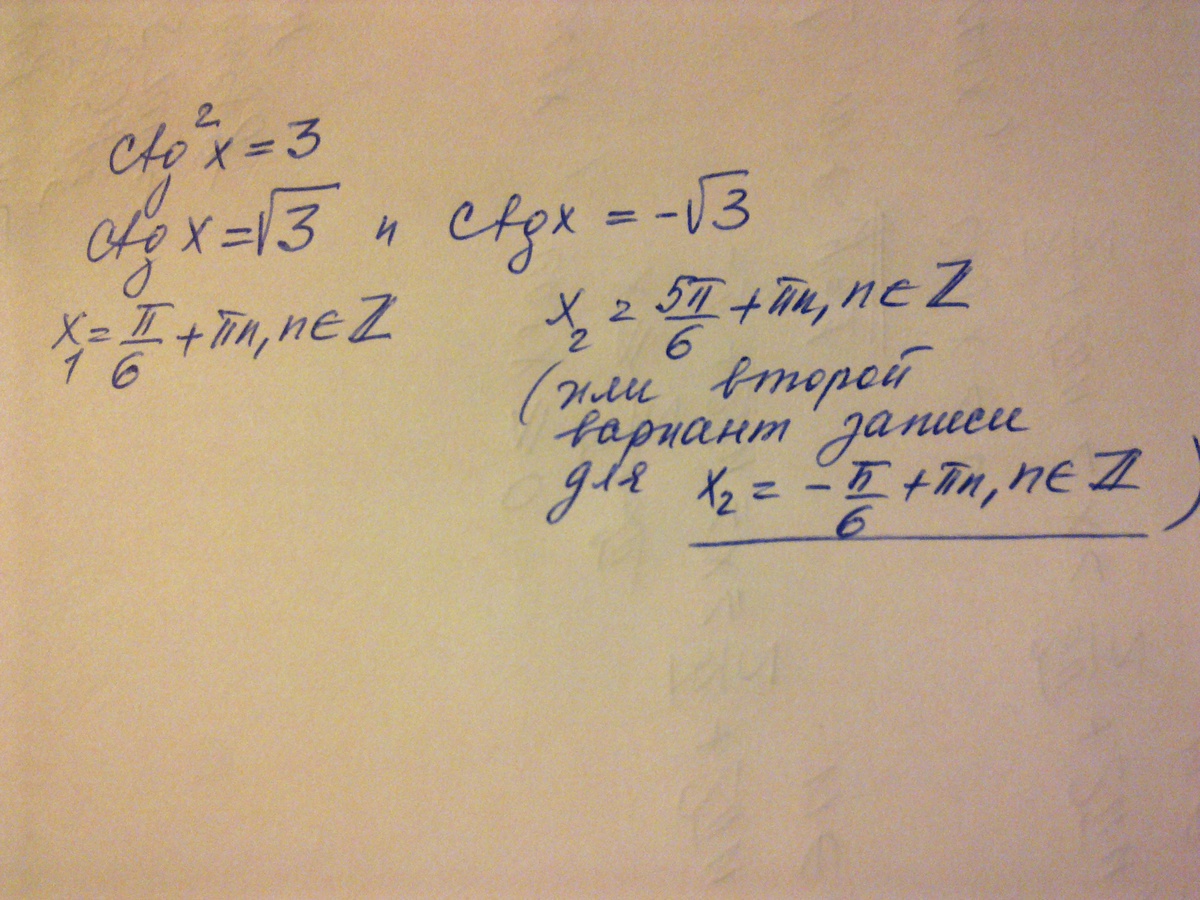 ctg²x = 3
ctg x = √3 и ctgx = -√3
x₁ = π/6 + πn, n ∈ ℤ x₂ = 5π/6 + πn, n ∈ ℤ
(или второй
вариант записи
для x₂ = -π/6 + πn, n ∈ ℤ)